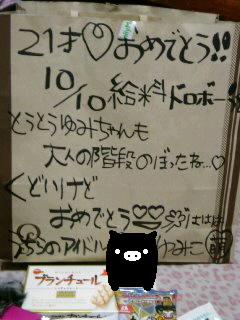 21才♡おめでとう!!
10/10 給料ドロボー
とうとうゆみちゃんも
大人の階段のぼったね…♡
くどいけど
おめでとう
うちらのアイドル
ブランチュール